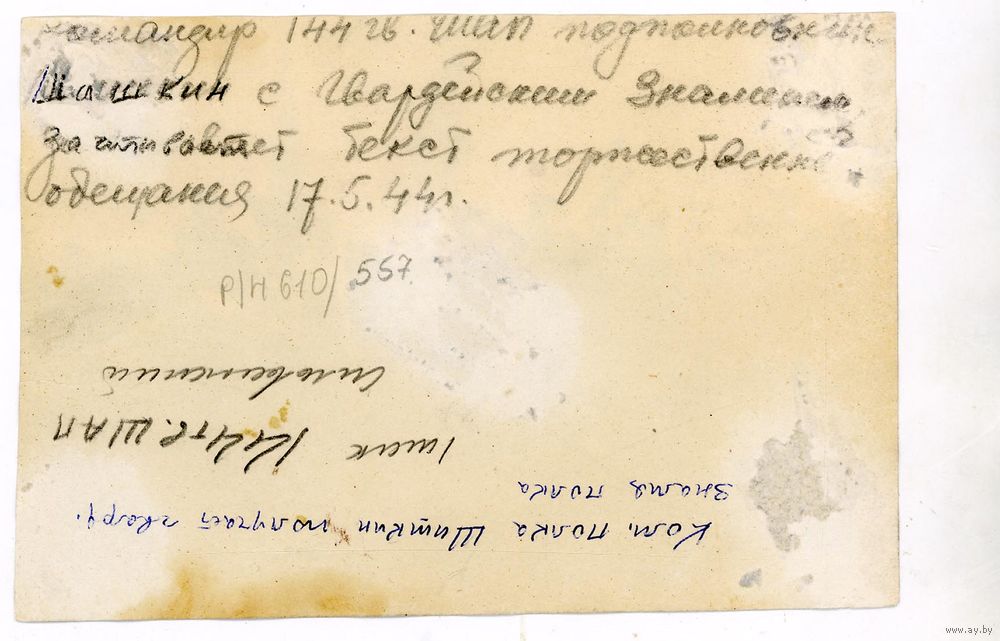 командир 144 гв. ШАП подполковник
Шишкин с Гвардейским Знаменем
зачитывает текст торжественно
обещания 17.5.44г.
Р/Н 610/ 557
144 гв. ШАП
Ком. полка Шишкин получает гвард.
знамя полка
www.ay.by